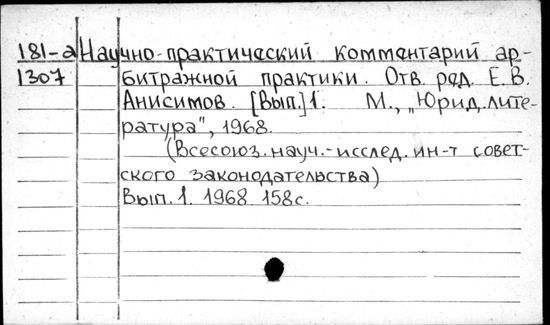 181-а Научно-практический комментарий ар-
1307 битражной практики. Отв. ред. Е.В.
Анисимов. [Вып.] 1. М., „Юрид. лите-
ратура", 1968.
(Всесоюз. науч.-исслед. ин-т совет-
ского законодательства)
Вып. 1. 1968. 158с.